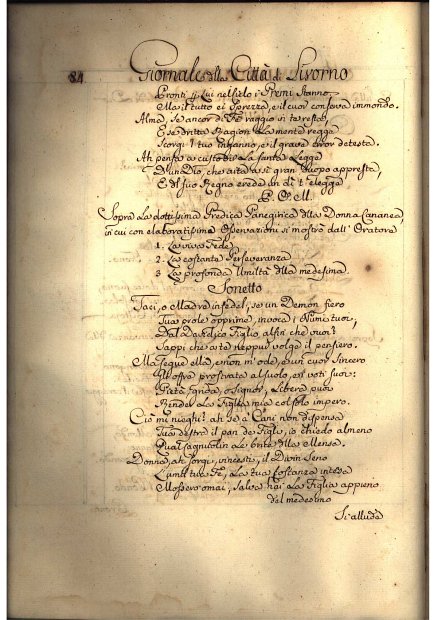 84 Giornale della Città di Livorno
Pronti p. Lui nel Cielo i Premi stanno,
Ma il tutto ei sprezza, e il cuor conserva immondo.
Alma, se ancor di Fè raggio in te resta,
E se dritta Ragion la mente regga
Scorgi l tuo inganno, e il grave error detesta.
Ah pensa a custodir la santa Legge
D'un Dio, che aita a sì gran duopo appresta,
E del suo Regno erede un dì t'elegge
Sopra la dottissima Predica Panegirica della Donna Cananea,
in cui con elaboratissime Osservazioni si mostrò dall'Oratore
1. La viva Fede
2. La costante Perseveranza
3 La profonda Umiltà della medesima.
Sonetto
Taci, o Madre infedel, se un Demon fiero
Tua prole opprime, invoca i Numi tuoi,
Dal Davidico Figlio alfin che vuoi?
Sappi che a te neppur volge il pensiero.
Ma segue ella, e non m'ode, e un cuor sincero
Gli offre prostrata al suolo, e i voti suoi:
Pietà, grida, o Signor, libera puoi
Render la Figlia mia col solo impero.
Ciò mi nieghi? ah se a' Cani non dispensa
Tua destra il pan de' Figli, io chiedo almeno
Qual cagnuolin le brice della Mensa.
Donna, ah sorgi, vincesti, il Divin Seno
L'umil tua Fè, la tua costanza intensa
Mossero omai, salva hai la Figlia appieno
del medesimo
Si allude